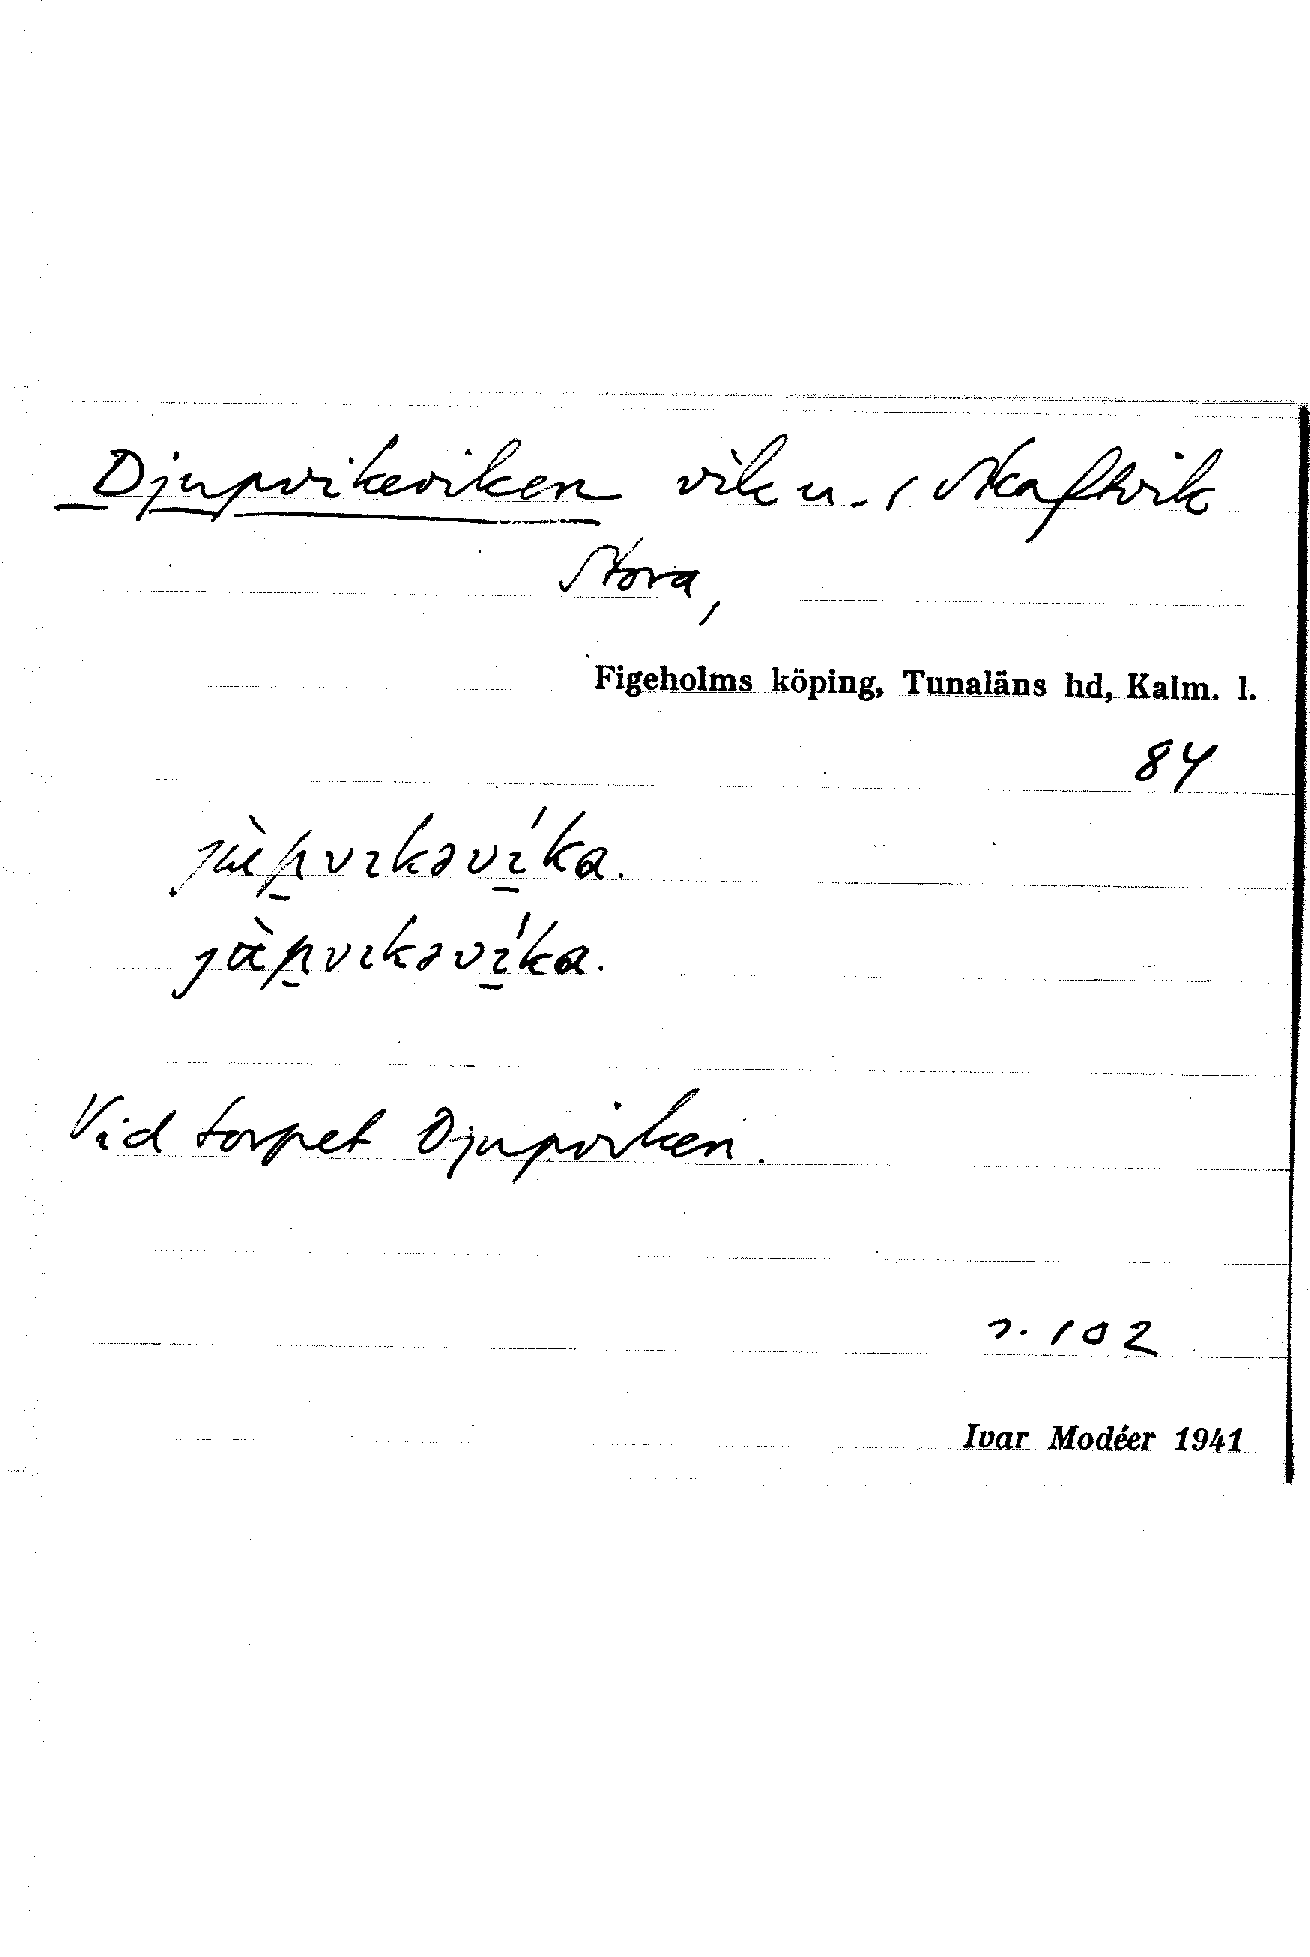 Djupvikeviken vik u. / Skaftvik
Stora,
Figeholms köping, Tunaläns hd, Kalm. l.
84
Vid torpet Djupviken.
n. 102
Ivar Modéer 1941